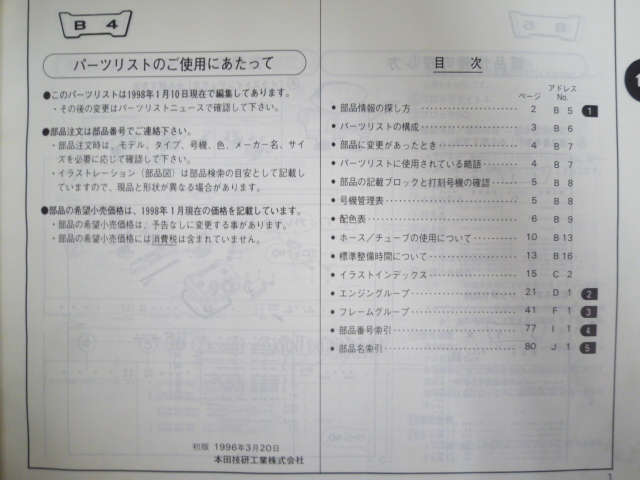 B 4
パーツリストのご使用にあたって
●このパーツリストは1998年1月10日現在で編集してあります。
・その後の変更はパーツリストニュースで確認して下さい。
●部品注文は部品番号でご連絡下さい。
・部品注文時は、モデル、タイプ、号機、色、メーカー名、サイ
ズを必要に応じて確認して下さい。
・イラストレーション（部品図）は部品検索の目安として記載し
ていますので、現品と形状が異なる場合があります。
●部品の希望小売価格は、1998年1月現在の価格を記載しています。
・部品の希望小売価格は、予告なしに変更する事があります。
・部品の希望小売価格には消費税は含まれていません。
初版 1996年3月20日
本田技研工業株式会社
目 次
ページ アドレスNo.
●部品情報の探し方 2 B 5 1
●パーツリストの構成 3 B 6
●部品に変更があったとき 4 B 7
●パーツリストに使用されている略語 4 B 7
●部品の記載ブロックと打刻号機の確認 5 B 8
●号機管理表 5 B 8
●配色表 6 B 9
●ホース／チューブの使用について 10 B 13
●標準整備時間について 13 B 16
●イラストインデックス 15 C 2
●エンジングループ 21 D 1 2
●フレームグループ 41 F 1 3
●部品番号索引 77 I 1 4
●部品名索引 80 J 1 5
1